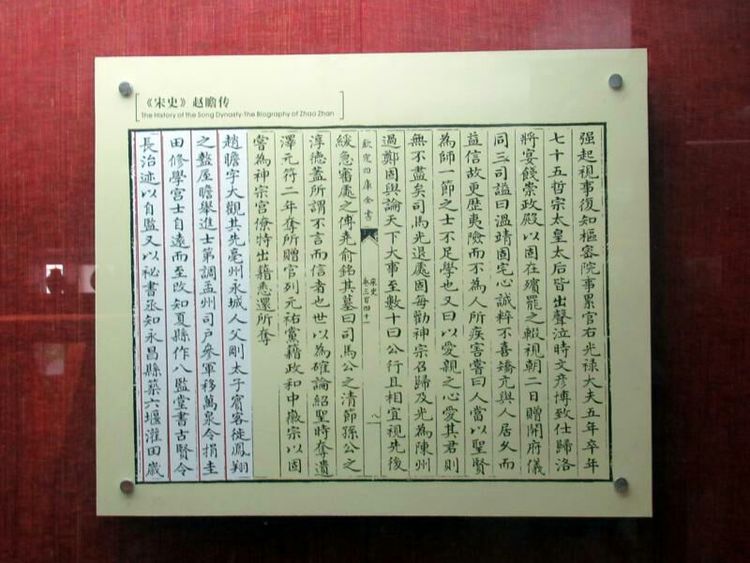 《宋史》赵瞻传
The History of the Song Dynasty·The Biography of Zhao Zhan
强起視事復知樞宻院事累官右光禄大夫五年卒年
七十五哲宗太皇太后皆出聲泣時文彦博致仕歸洛
將宴餞崇政殿以固在殯罷之輟視朝二日贈開府儀
同三司諡曰温靖固宅心誠粹不喜矯亢與人居久而
益信故更歴夷險而不為人所疾害嘗曰人當以聖賢
為師一節之士不足學也又曰以愛親之心愛其君則
無不盡矣司馬光退處固每勸神宗召歸及光為陳州
過鄭固與論天下大事至數十曰公行且相宜視先後
欽定四庫全書
宋史
卷三百四十一
八
緩急審處之傅堯俞銘其墓曰司馬公之清節孫公之
淳德蓋所謂不言而信者也世以為確論紹聖時奪遺
澤元符二年奪所贈官列元祐黨籍政和中徽宗以固
嘗為神宗宫僚特出籍悉還所奪
趙瞻字大觀其先亳州永城人父剛太子賓客徙鳳翔
之盩厔瞻舉進士第調孟州司户參軍移萬泉令捐圭
田修學宫士自逺而至改知夏縣作八監堂書古賢令
長治迹以自監又以祕書丞知永昌縣築六堰灌田歲